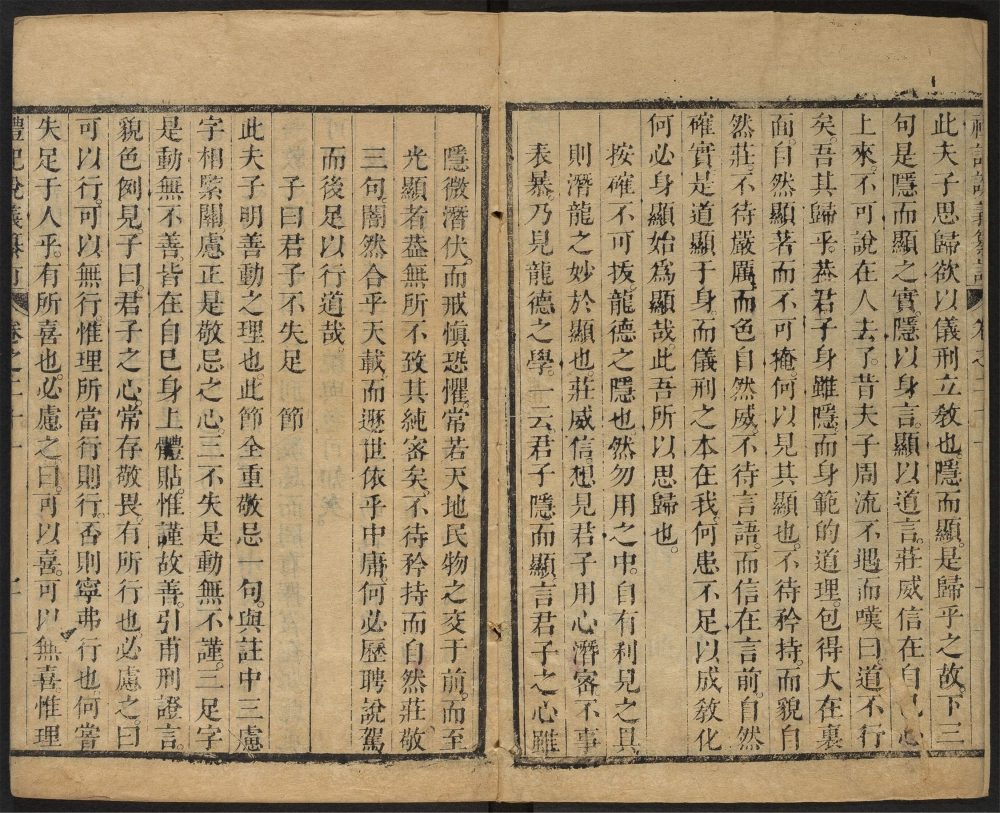 此夫子思歸欲以儀刑立敎也。隱而顯。是歸乎之故。下三
句是隱而顯之實。隱以身言。顯以道言。莊威信在自己心
上來。不可說在人去了。昔夫子周流不遇而嘆曰。道不行
矣。吾其歸乎。葢君子身雖隱而身範的道理。包得大在裏
面。自然顯著而不可掩。何以見其顯也。不待矜持。而貌自
然莊。不待嚴厲。而色自然威。不待言語。而信在言前。自然
確實。是道顯于身。而儀刑之本在我。何患不足以成敎化
何必身顯始爲顯哉。此吾所以思歸也。
按確不可拔。龍德之隱也。然勿用之中。自有利見之具
則潛龍之妙於顯也。莊威信。想見君子用心潛密。不事
表暴。乃見龍德之學。一云君子隱而顯。言君子之心雖
隱微潛伏。而戒愼恐懼。常若天地民物之交于前。而至
光顯者。葢無所不致其純密矣。不待矜持而自然莊。敬
三句。闇然合乎天載。而遯世依乎中庸。何必歷聘說駕
而後足以行道哉。
子曰君子不失足　節
此夫子明善動之理也。此節全重敬忌一句。與註中三慮
字相緊關。慮正是敬忌之心。三不失是動無不謹。三足字
是動無不善。皆在自巳身上體貼。惟謹故善。引甫刑證言。
貌色例見。子曰。君子之心。常存敬畏。有所行也。必慮之。曰
可以行。可以無行。惟理所當行則行。否則寧弗行也。何嘗
失足于人乎。有所喜也。必慮之。曰。可以喜。可以無喜。惟理
禮記說義纂訂　卷之二十一